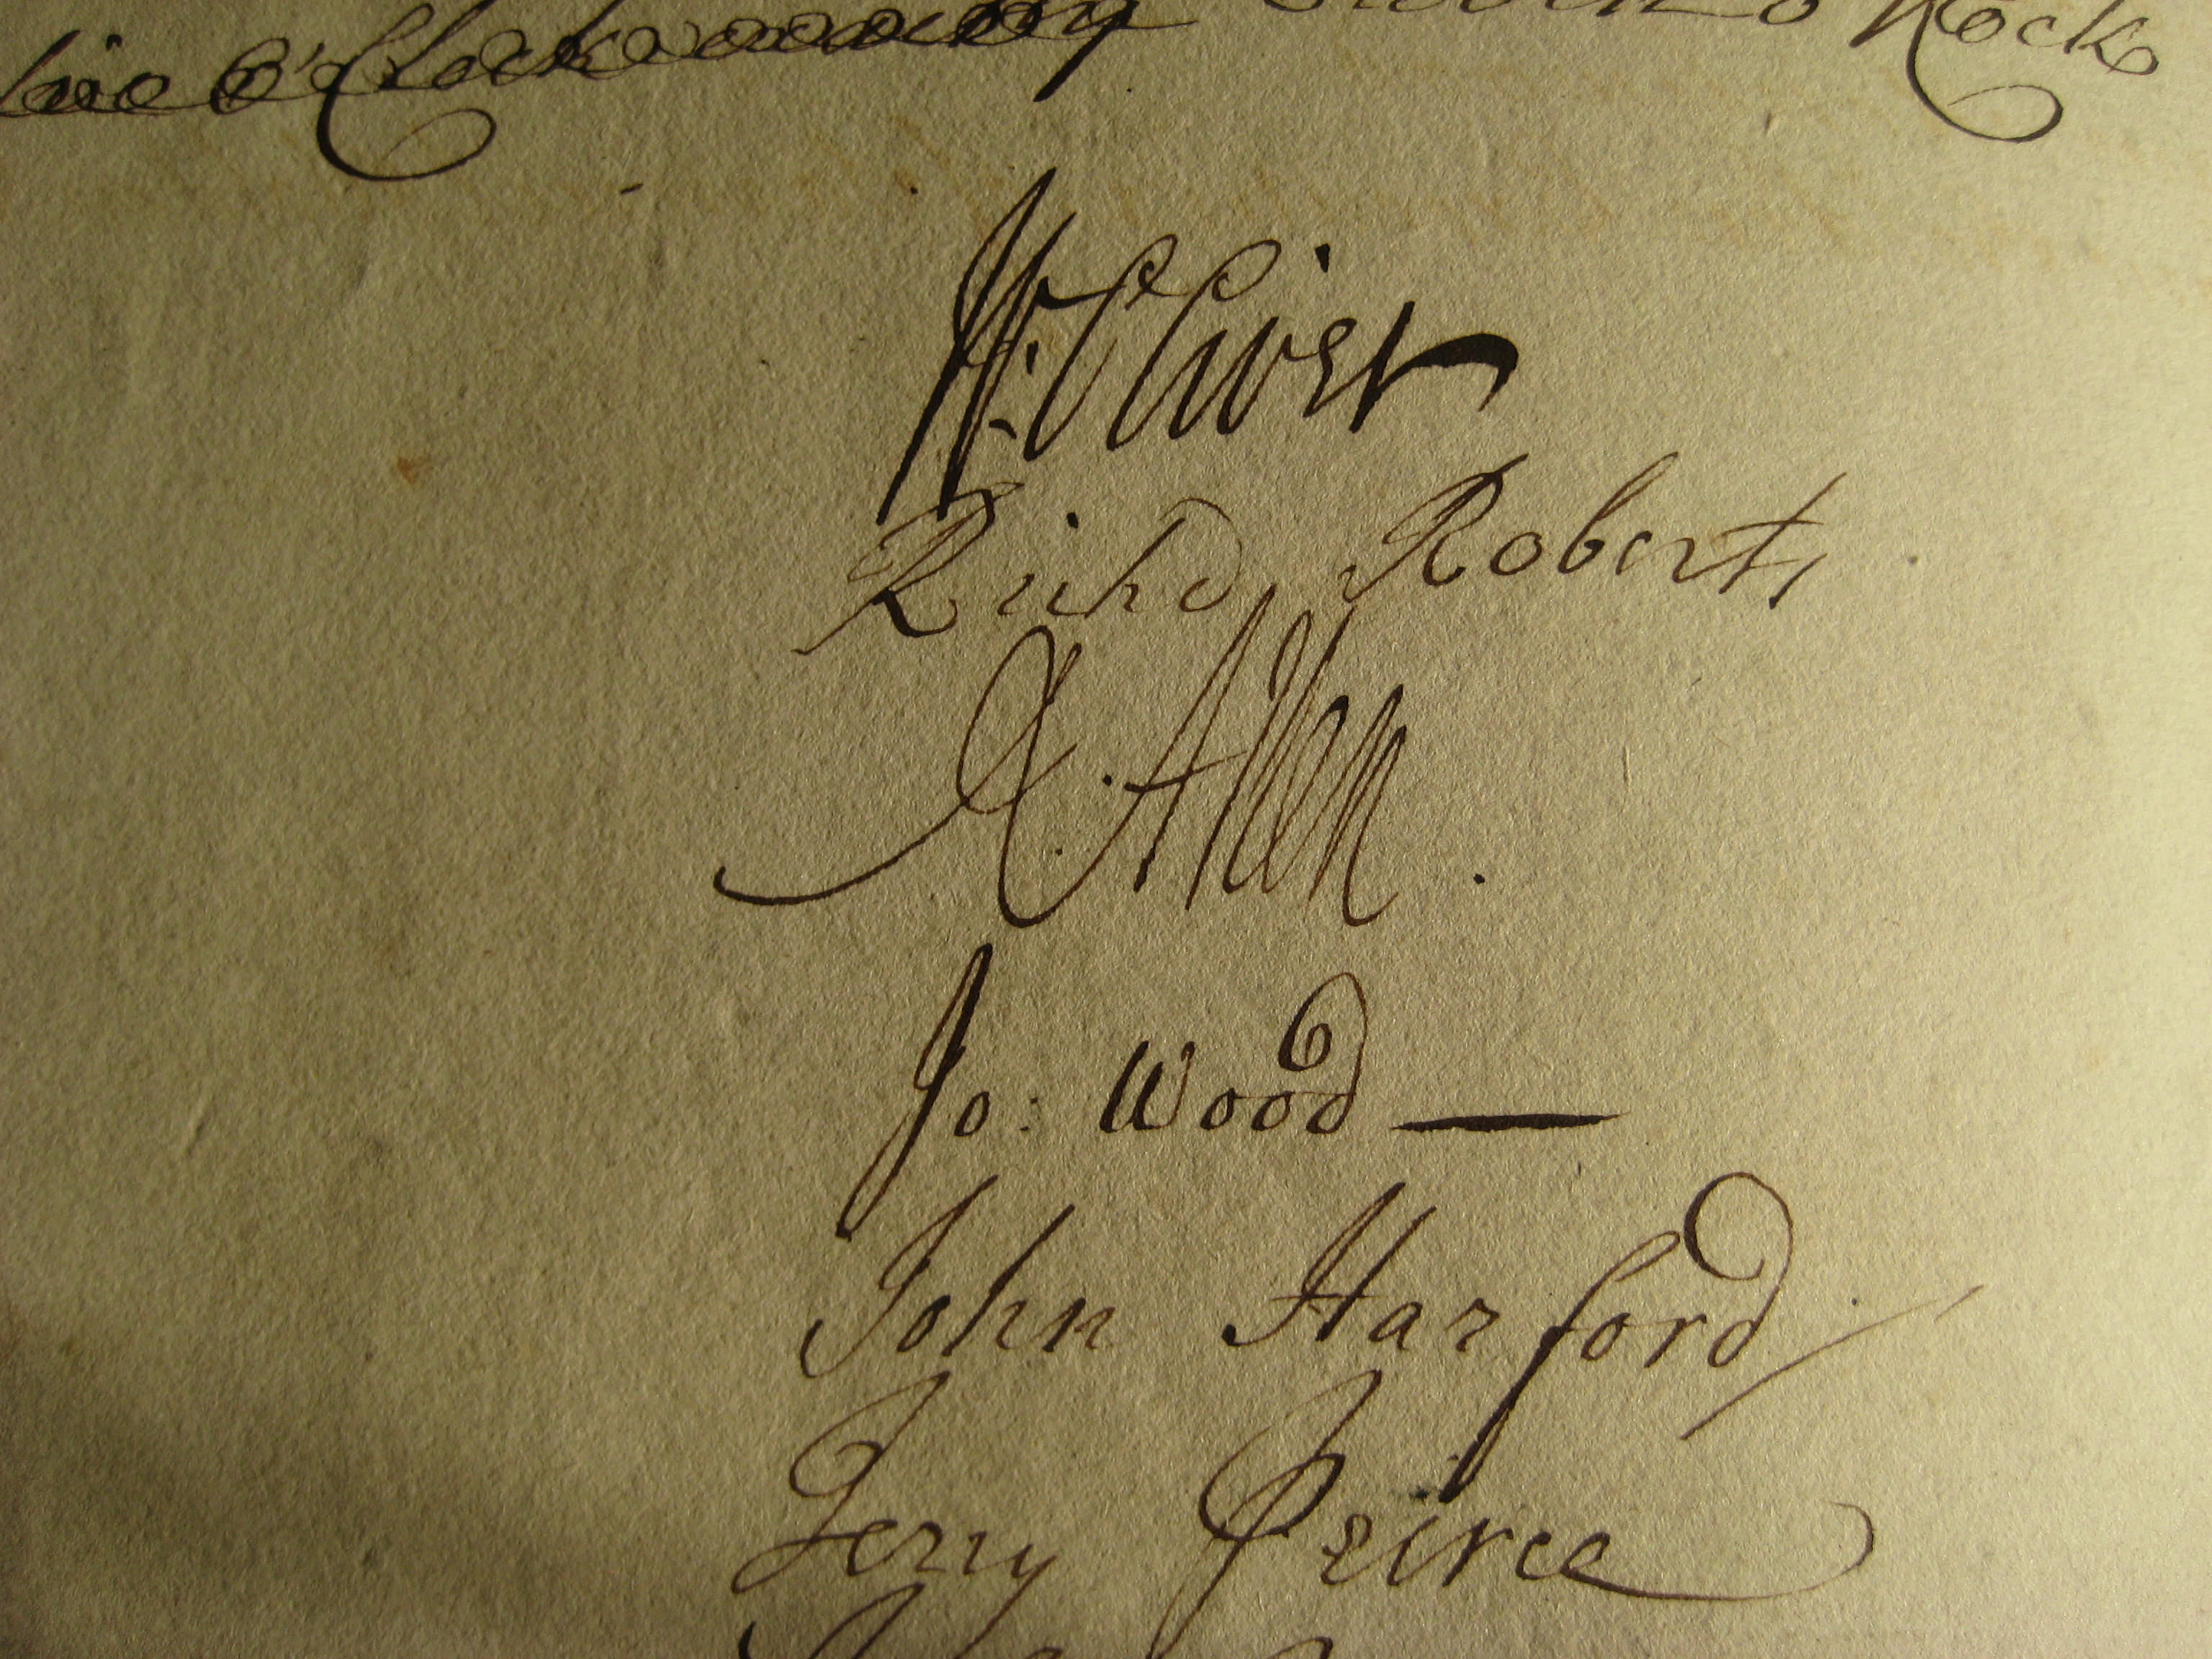 o'Clock
W: Oliver
Richd Roberts
R. Allen.
Jo: Wood —
John Harford
Jerry Peirce